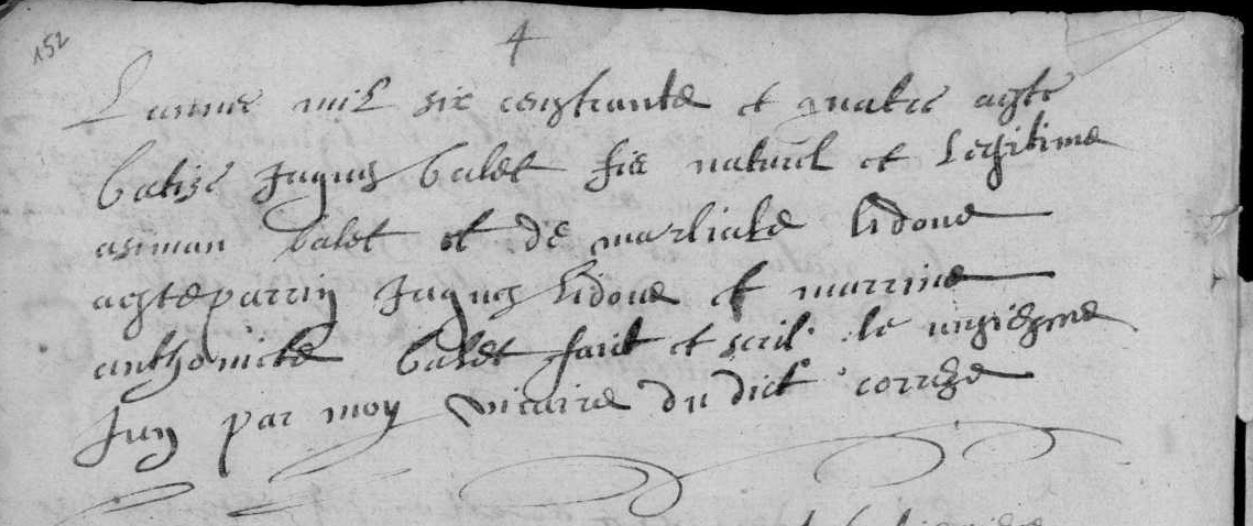 152
4
L'annee mil six cens trante et quatre a este
batize Jaques balet fis naturel et legitime
balet et de marliate lidove
a este parrin Jaques lidove et marrine
anthoniete balet faict et scrit le unziesme
Juin par moy vicaire du dict correze